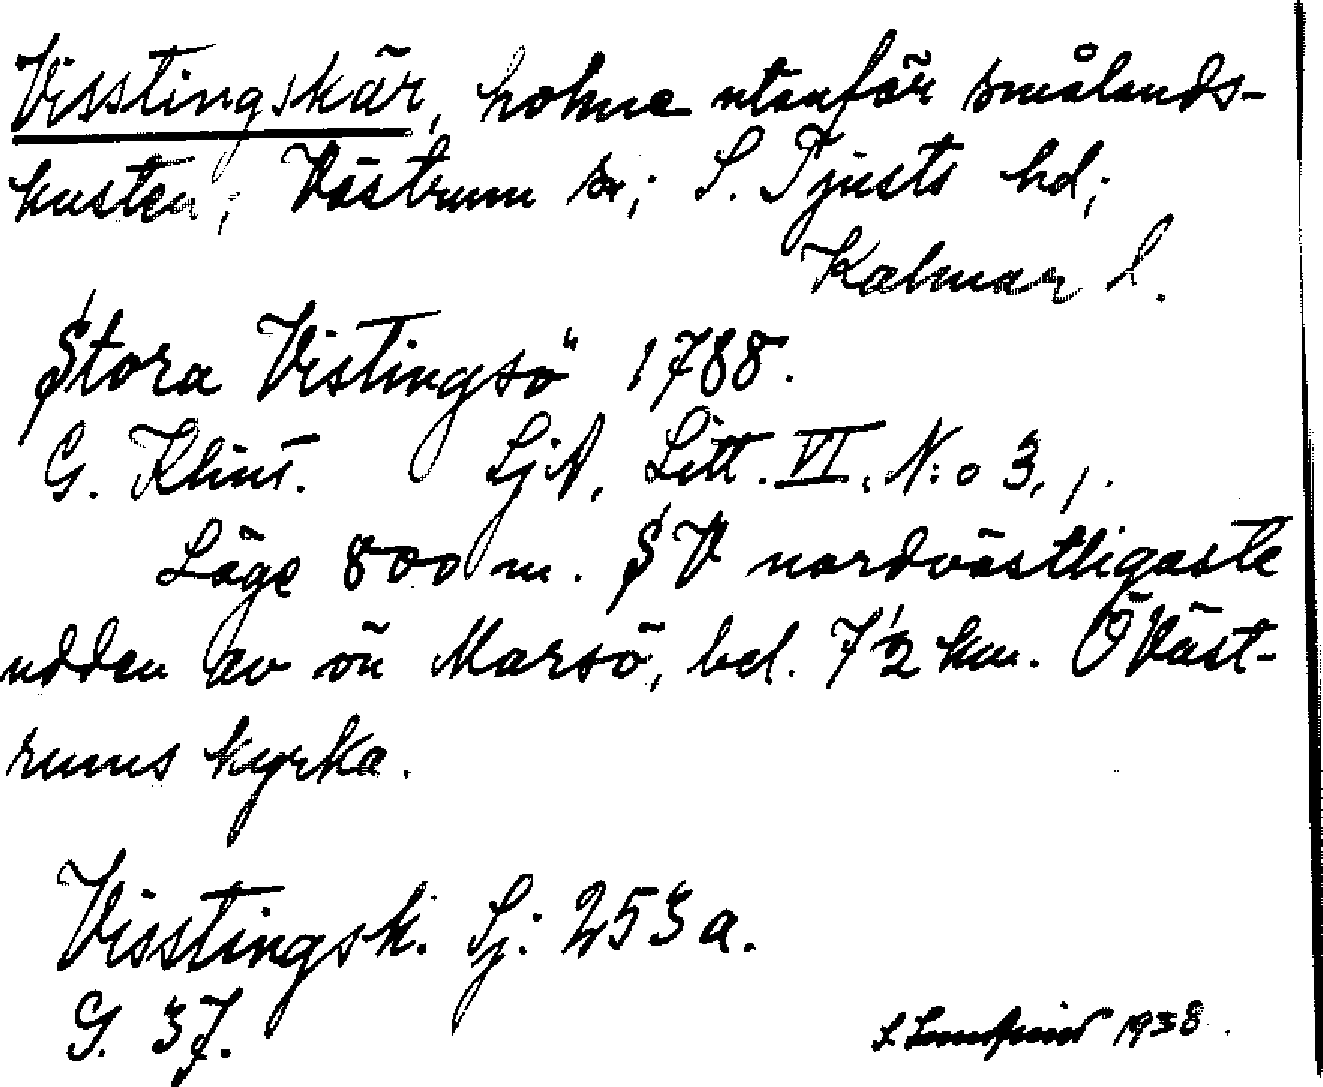 Visstingskär, holme utanför smålands-
kusten; Västrum sn; S. Tjusts hd;
Kalmar l.
Stora Vistingsö 1788.
G. Klint. SjA, Litt. VI, N:o 3, 1.
Läge 800 m. SV nordvästligaste
udden av ön Marsö, bel. 7 1/2 km. Ö Väst-
rums kyrka.
Visstingsk. Sj: 253 a.
G. 37.
1938.